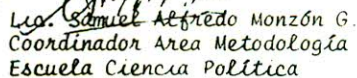 Lic. Samuel Alfredo Monzón G.
Coordinador Area Metodología
Escuela Ciencia Política